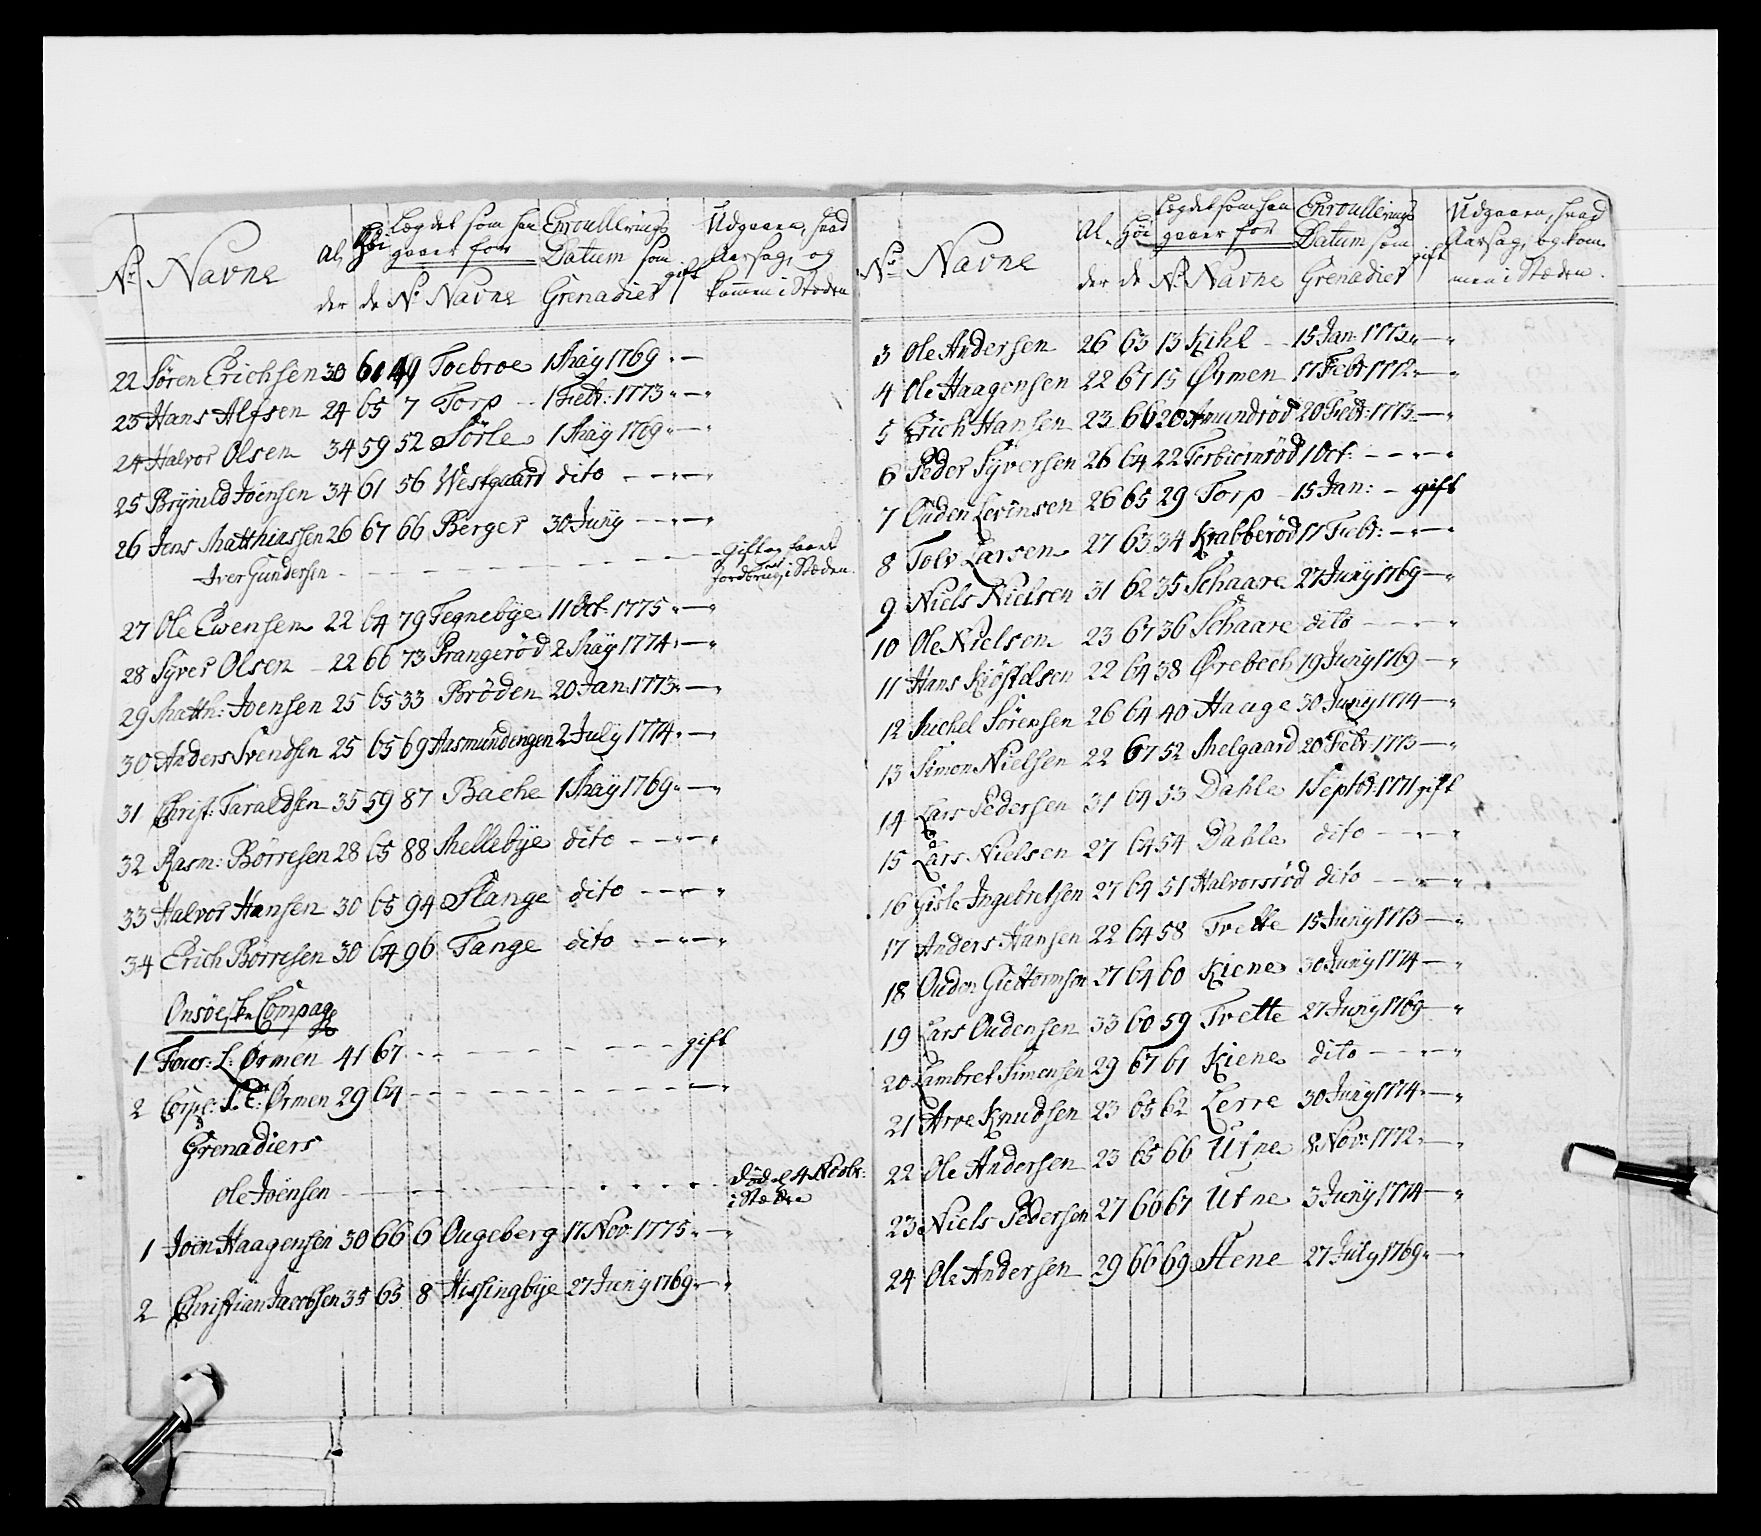 No Navne Al, der Höi de Lægdet som han gaaer for No Navne Enroullerings Datum som Grenadier gift Udgaaen, hvad Aarsag, og kommen i Stæden
22 Sören Erichsen 30 61 49 Toebroe 1 May 1769 " —
23 Hans Alfsen 24 65 7 Torp - - 1 Febr: 1773 " — "
24 Halvor Olsen 34 59 52 Sörle 1 May 1769 " — "
25 Brÿnild Joensen 34 61 56 Westgaard dito - - - "
26 Jens Matthiassen 26 67 66 Berger 30 Junÿ - - - "
Iver Gundersen - - - - - - gift og
i Stæden
27 Ole Evensen 22 64 79 Tegnebÿe 11 Oct: 1775 " — "
28 Sÿver Olsen - 22 66 73 Prangeröd 2 Maÿ 1774 " — "
29 Matth: Joensen 25 65 33 Bröden 20 Jan: 1773 " — "
30 Anders Svendsen 25 65 69 Aasmundengen 2 July 1774 " — "
31 Christ: Taraldsen 35 59 87 Bache 1 Maÿ 1769 " — "
32 Rasm: Börresen 28 65 88 Mellebÿe dito - - - "
33 Halvor Hansen 30 65 94 Slange dito - - - "
34 Erich Börresen 30 64 96 Tange dito - - - "
Onsöeske Compag
1 Four: L: Ørmen 41 67 - - - - - - gift
2 Corp: L: C: Ørmen 29 64 - - - - - - "
Grenadiers
Ole Joensen - - - - - - död d 4
i Stæden
1 Joen Haagensen 30 66 6 Ougeberg 17 Nov: 1775 " — "
2 Christian Jacobsen 35 65 8 Hissingbÿe 27 Junÿ 1769 " — "
No Navne Al, der Höi de Lægdet som han gaaer for No Navne Enroullerings Datum som Grenadier gift Udgaaen, hvad Aarsag, og kommen i Stæden.
3 Ole Andersen 26 63 13 Kihl - - 15 Jan: 1773 " — "
4 Ole Haagensen 22 67 15 Ørmen 17 Febr: 1772 " — "
5 Erich Hansen 23 66 20 Amundröd 20 Febr: 1773 — "
6 Peder Sÿversen 26 64 22 Torbiörnröd 1 Oct: - - - "
7 Ouden Levinsen 26 65 29 Torp - 15 Jan: - gift
8 Tolv Larsen 27 63 34 Krabberöd 17 Febr: - - "
9 Niels Nielsen 31 62 35 Schaare 27 Junÿ 1769 — "
10 Ole Nielsen 23 67 36 Schaare dito - - - "
11 Hans Kiöstelsen 22 64 38 Ørebech 19 Junÿ 1769 — "
12 Michel Sörensen 26 64 40 Hauge 30 Junÿ 1774 — "
13 Simon Nielsen 22 67 52 Melgaard 20 Febr: 1773 — "
14 Lars Pedersen 31 64 53 Dahle 1 Septbr: 1771 gift
15 Lars Nielsen 27 64 54 Dahle dito - - - "
16 Gisle Ingebretsen 27 64 51 Halvorsröd dito - - - "
17 Anders Hansen 22 64 58 Trette 15 Junÿ 1773 — "
18 Ouden Guttormsen 27 64 60 Kiene 30 Junÿ 1774 — "
19 Lars Oudensen 33 60 59 Trette 27 Junÿ 1769 — "
20 Lambret Simensen 29 67 61 Kiene dito - - - "
21 Arve Knudsen 23 65 62 Lerre 30 Junÿ 1774 " — "
22 Ole Andersen 23 65 66 Utne 8 Nov: 1772 " — "
23 Niels Pedersen 27 66 67 Utne 3 Junÿ 1774 — "
24 Ole Andersen 29 66 69 Stene 27 Julÿ 1769 " — "